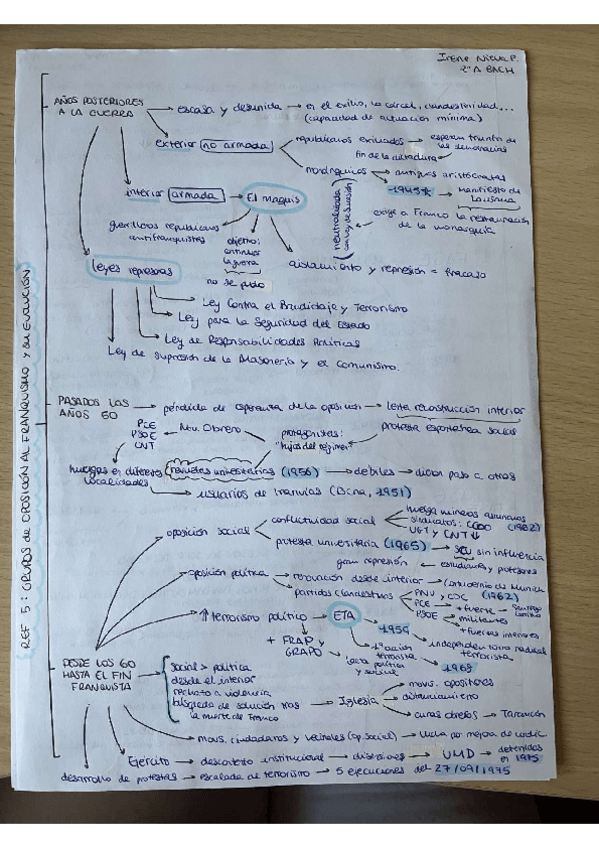 Irene Nieva P.
2º A BACH
REF 5: GRUPOS DE OPOSICIÓN AL FRANQUISMO Y SU EVOLUCIÓN
AÑOS POSTERIORES
A LA GUERRA
escasa y desunida → en el exilio, la cárcel, clandestinidad...
(capacidad de actuación mínima)
exterior no armada
republicanos exiliados → esperan triunfo de
las democracias
fin de la dictadura
monárquicos → antiguos aristócratas
1945 → manifiesto de
Lausana
exige a Franco la restauración
de la monarquía
neutralizada
con Ley de Sucesión
interior armada → El maquis
guerrilleros republicanos
antifranquistas
objetivo:
continuar
la guerra
no se pudo
aislamiento y represión = fracaso
leyes represoras
Ley Contra el Bandidaje y Terrorismo
Ley para la Seguridad del Estado
Ley de Responsabilidades Políticas
Ley de Supresión de la Masonería y el Comunismo.
PASADOS LOS
AÑOS 50
pérdida de esperanza de la oposición → lenta reconstrucción interior
protesta espontánea social
PCE
PSOE
CNT
Mov. Obrero
protagonistas:
"hijos del régimen"
huelgas en diferentes
localidades
revueltas universitarias (1956) → débiles → dieron paso a otras
usuarios de tranvías (Bcna, 1951)
DESDE LOS 60
HASTA EL FIN
FRANQUISTA
oposición social
conflictividad social
huelga mineros asturianos
sindicatos: CCOO (1962)
UGT y CNT ↓
protesta universitaria (1965) → SEU sin influencia
gran represión ← estudiantes y profesores
oposición política
renovación desde interior → Contubernio de Munich
(1962)
partidos clandestinos
PNV y CDC
PCE → + fuerte → Santiago
Carrillo
PSOE → militantes
+ fuerzas interiores
↑ terrorismo político → ETA
1959
independentismo radical
terrorista
1ª acción
terrorista
1968
lucha política
y social
+ FRAP y
GRAPO
social > política
desde el interior
rechazo a violencia
búsqueda de solución tras
la muerte de Franco
Iglesia
movs. opositores
distanciamiento
curas obreros → Tarancón
movs. ciudadanos y vecinales (op. social) → lucha por mejora de condic.
Ejército → descontento institucional → disensiones → UMD → detenidos
en 1975
desarrollo de protestas → escalada de terrorismo → 5 ejecuciones del 27/09/1975